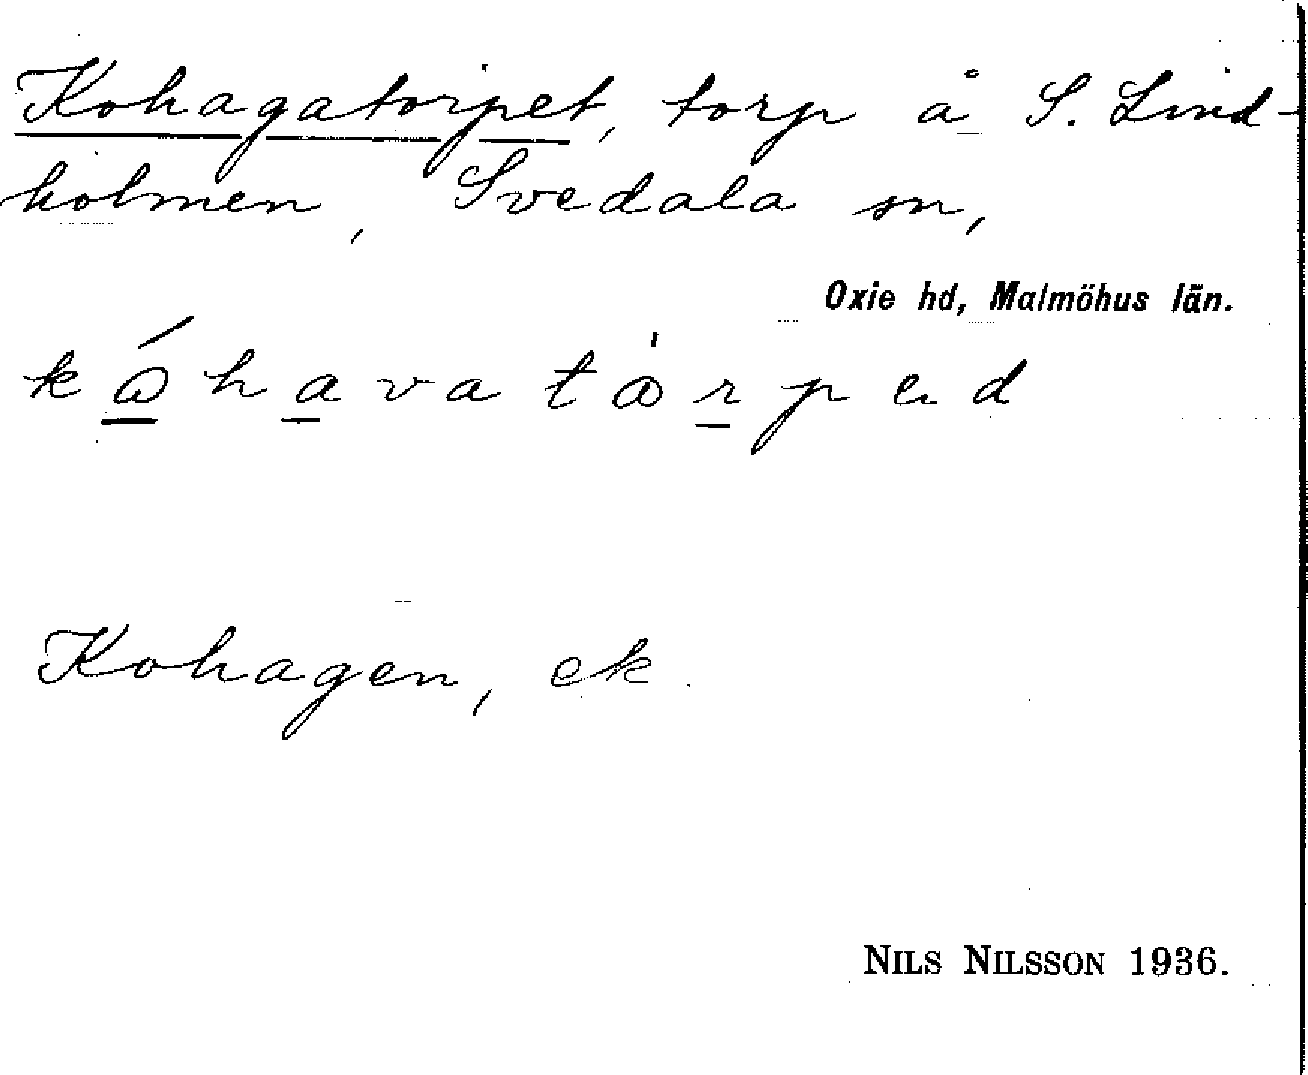 Kohagatorpet, torp å S. Lind-
holmen, Svedala sn,
Oxie hd, Malmöhus län.
Kohagen, ek.
NILS NILSSON 1936.